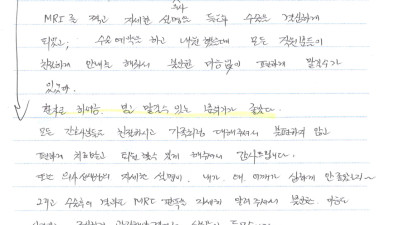 MRI를 찍고 자세한 설명을 듣고 수술을 결심하게
되었고, 수술 예약을 하고 내원 했을때 모든 직원분들이
친절하게 안내를 해줘서 불안한 마음없이 편하게 맡길수가
있었다.
환자로 하여금, 믿고 맡길수 있는 분위기가 좋았다.
모든 간호사분들도 친절하시고 가족처럼 대해주셔서 불편하지 않고
편하게 치료받고 퇴원 할수 있게 해주셔서 감사드립니다.
또한 의사선생님의 자세한 설명이, 내가 왜 어깨가 심하게 안 좋았는지~
그리고 수술후의 결과도 MRI 판독을 자세히 알려 주셔서 불안한 마음도